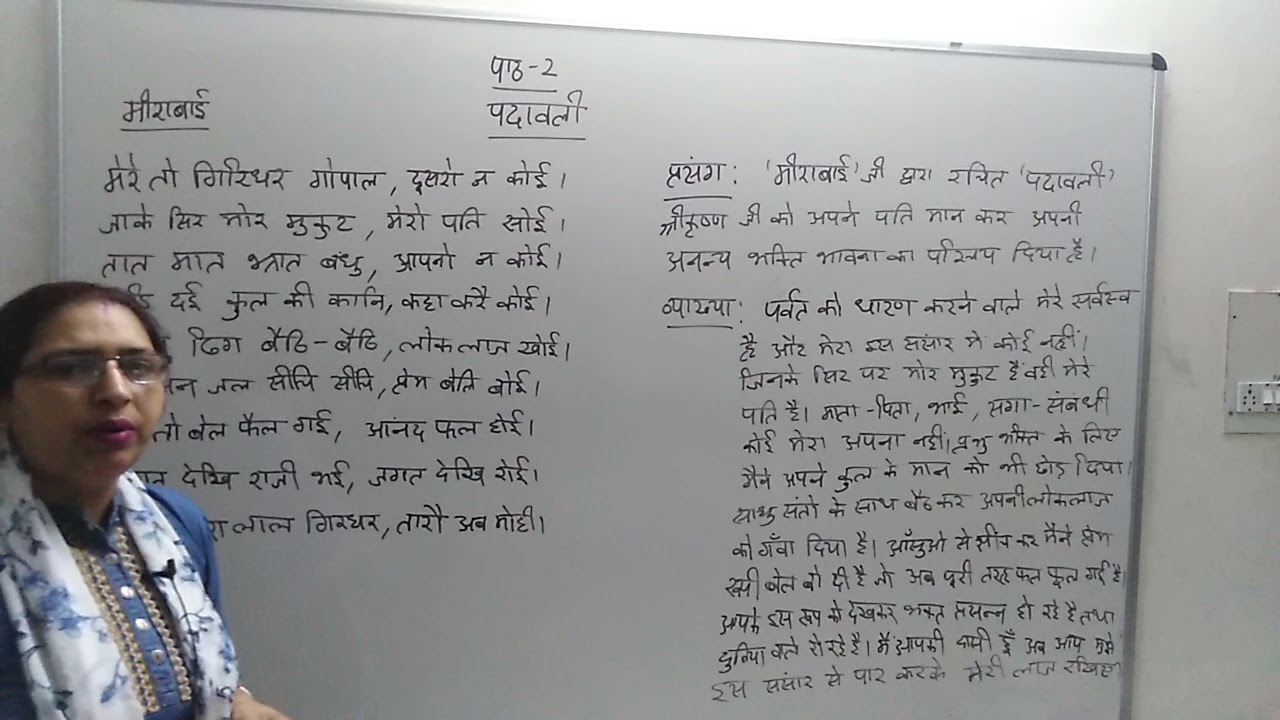 पाठ-2
मीराबाई
पदावली
मेरे तो गिरिधर गोपाल, दूसरो न कोई।
जाके सिर मोर मुकुट, मेरो पति सोई।
तात मात भ्रात बंधु, आपनो न कोई।
दई कुल की कानि, कहा करै कोई।
ढिग बैठि-बैठि, लोकलाज खोई।
जल सींचि सींचि, प्रेम बेलि बोई।
बेल फैल गई, आनंद फल होई।
देखि राजी भई, जगत देखि रोई।
लाल गिरधर, तारौ अब मोही।
प्रसंग: 'मीराबाई' जी द्वारा रचित 'पदावली'
श्रीकृष्ण जी को अपने पति मान कर अपनी
अनन्य भक्ति भावना का परिचय दिया है।
व्याख्या: पर्वत को धारण करने वाले मेरे सर्वस्व
है और मेरा इस संसार मे कोई नहीं।
जिनके सिर पर मोर मुकुट है वही मेरे
पति है। माता-पिता, भाई, सगा-संबंधी
कोई मेरा अपना नहीं। प्रभु भक्ति के लिए
मैने अपने कुल के मान को भी छोड़ दिया।
साधु संतो के साथ बैठ कर अपनी लोकलाज
को गँवा दिया है। आँसुओ से सींच कर मैने प्रेम
रूपी बेल बो दी है जो अब पूरी तरह फल फूल गई है।
आपके इस रूप को देखकर भक्त प्रसन्न हो रहे है तथा
दुनिया वाले रो रहे है। मैं आपकी दासी हूँ अब आप मुझे
इस संसार से पार करके मेरी लाज रखिए